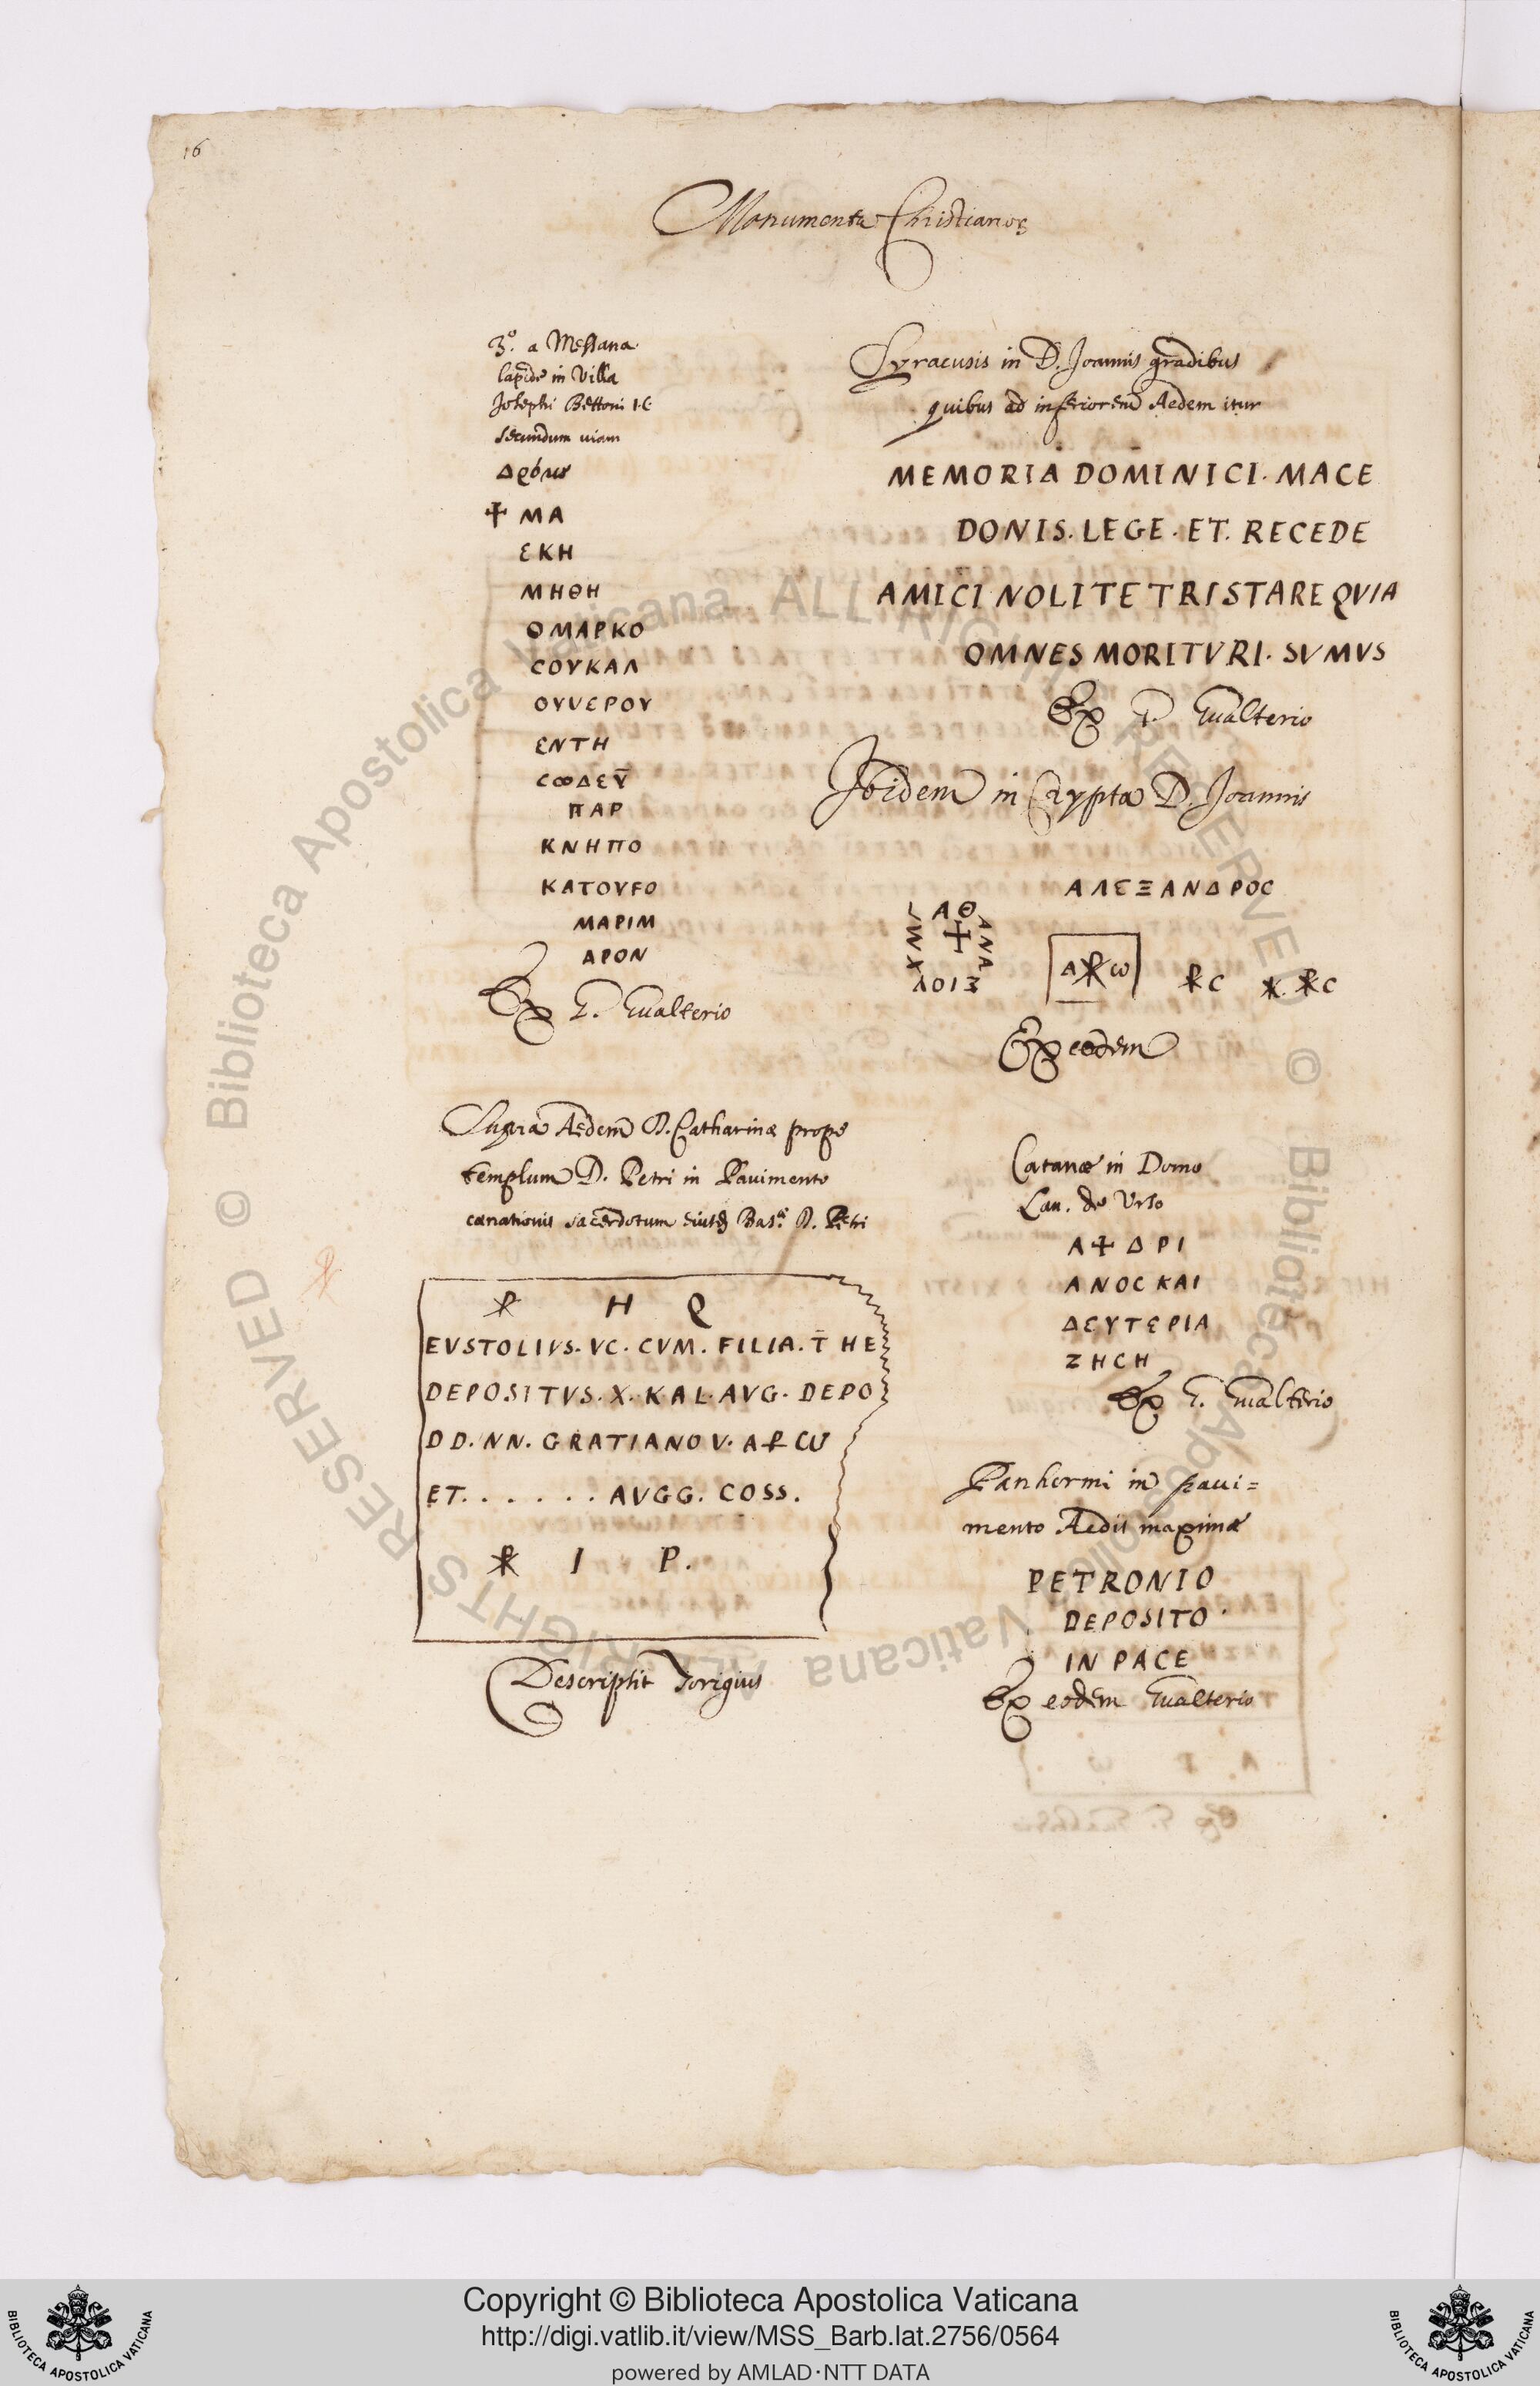 16
Monumenta Christianoꝝ
3.º a Messana
lapide in Villa
Josephi Bettoni I.C
secundum viam
✝ ΜΑ
ΕΚΗ
ΜΗΘΗ
ΟΜΑΡΚΟ
CΟΥΚΑΛ
ΟΥVΕΡΟΥ
ΕΝΤΗ
CωΔΕΥ̅
ΠΑΡ
ΚΝΗΠΟ
ΚΑΤΟΥFΟ
ΜΑΡΙΜ
ΑΡΟΝ
Ex G. Gualterio
Syracusis in D. Joannis gradibus
quibus ad inferiorem Aedem itur
MEMORIA DOMINICI. MACE
DONIS. LEGE. ET. RECEDE
AMICI NOLITE TRISTARE QVIA
OMNES MORITVRI. SVMVS
Ex G. Gualterio
Ibidem in Crypta D. Joannis
ΑΛΕΞΑΝΔΡΟC
ΑΘ
ΑΝΑ
✝
Α☧ω
⳨C
☧C
Ex eodem
Supra Aedem D. Catharinæ prope
templum D. Petri in Pavimento
cænationis sacerdotum eiusdẽ Bas.æ D. Petri
☧ H Q
EVSTOLIVS. VC. CVM. FILIA. T̅ HE
DEPOSITVS. X. KAL. AVG. DEPO
DD. NN. GRATIANO V. A⳨ω
ET. . . . . . AVGG. COSS.
☧ I P.
Descripsit Torigius
Catanæ in Domo
Lau. de Urso
Α✝ΔΡΙ
ΑΝΟC ΚΑΙ
ΔΕΥΤΕΡΙΑ
ΖΗCΗ
Ex G. Gualterio
Panhormi in paui=
mento Aedis maximæ
PETRONIO
DEPOSITO.
IN PACE
Ex eodem Gualterio
© Biblioteca Apostolica Vaticana ALL RIGHTS RESERVED © Biblioteca Apostolica Vaticana ALL RIGHTS RESERVED
BIBLIOTECA APOSTOLICA VATICANA
Copyright © Biblioteca Apostolica Vaticana
http://digi.vatlib.it/view/MSS_Barb.lat.2756/0564
powered by AMLAD·NTT DATA
BIBLIOTECA APOSTOLICA VATICANA